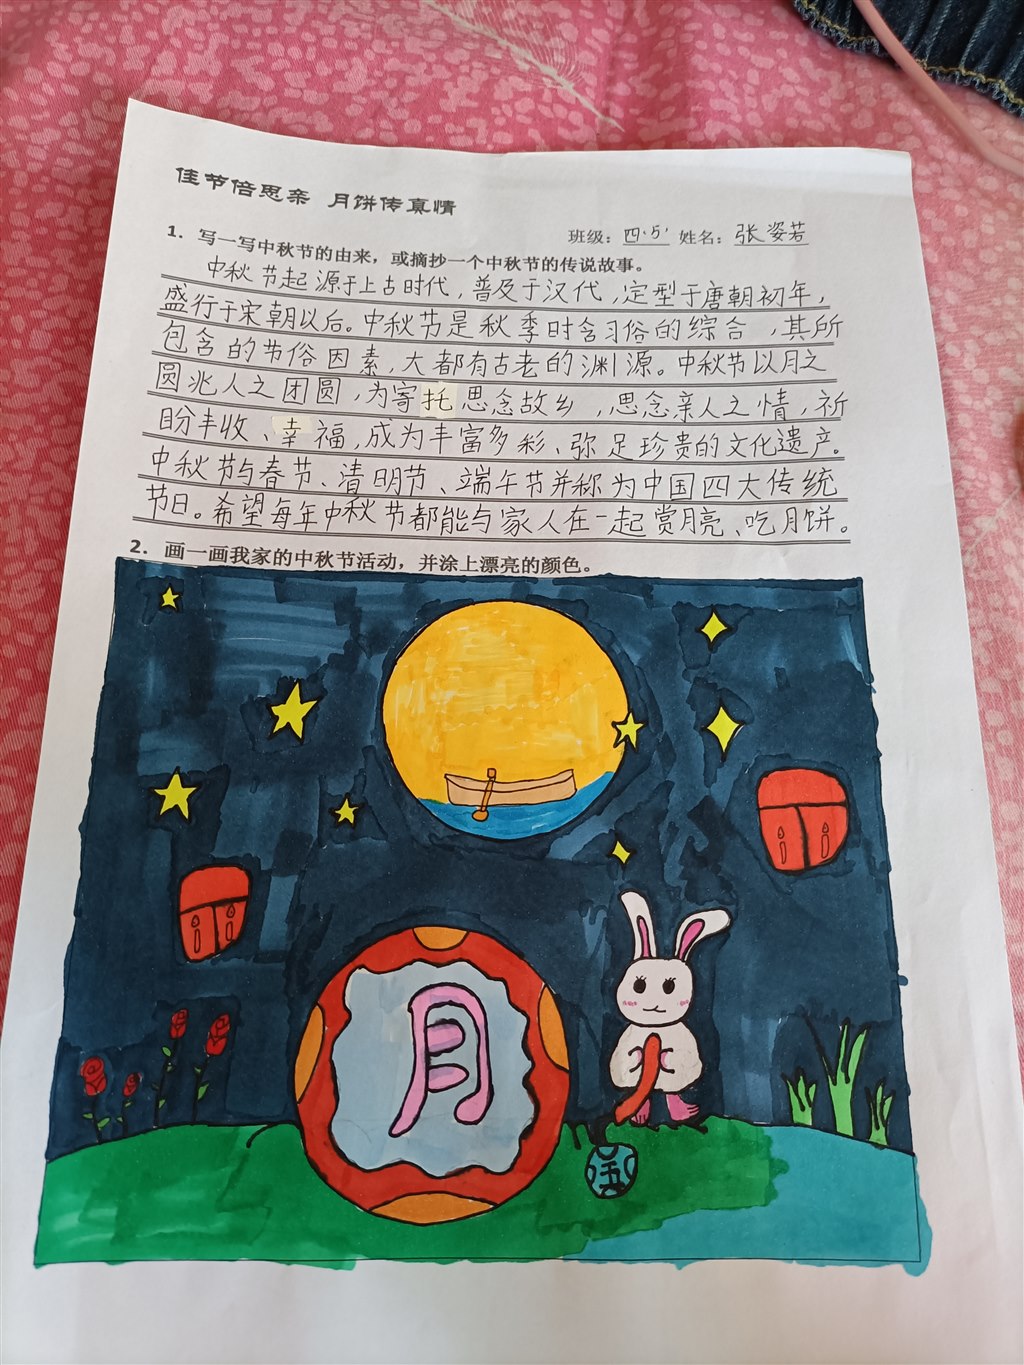 佳节倍思亲 月饼传真情
班级：四.5' 姓名：张姿若
1. 写一写中秋节的由来，或摘抄一个中秋节的传说故事。
中秋节起源于上古时代，普及于汉代，定型于唐朝初年，
盛行于宋朝以后。中秋节是秋季时含习俗的综合，其所
包含的节俗因素，大都有古老的渊源。中秋节以月之
圆兆人之团圆，为寄托思念故乡，思念亲人之情，祈
盼丰收、幸福，成为丰富多彩、弥足珍贵的文化遗产。
中秋节与春节、清明节、端午节并称为中国四大传统
节日。希望每年中秋节都能与家人在一起赏月亮、吃月饼。
2. 画一画我家的中秋节活动，并涂上漂亮的颜色。
月
五